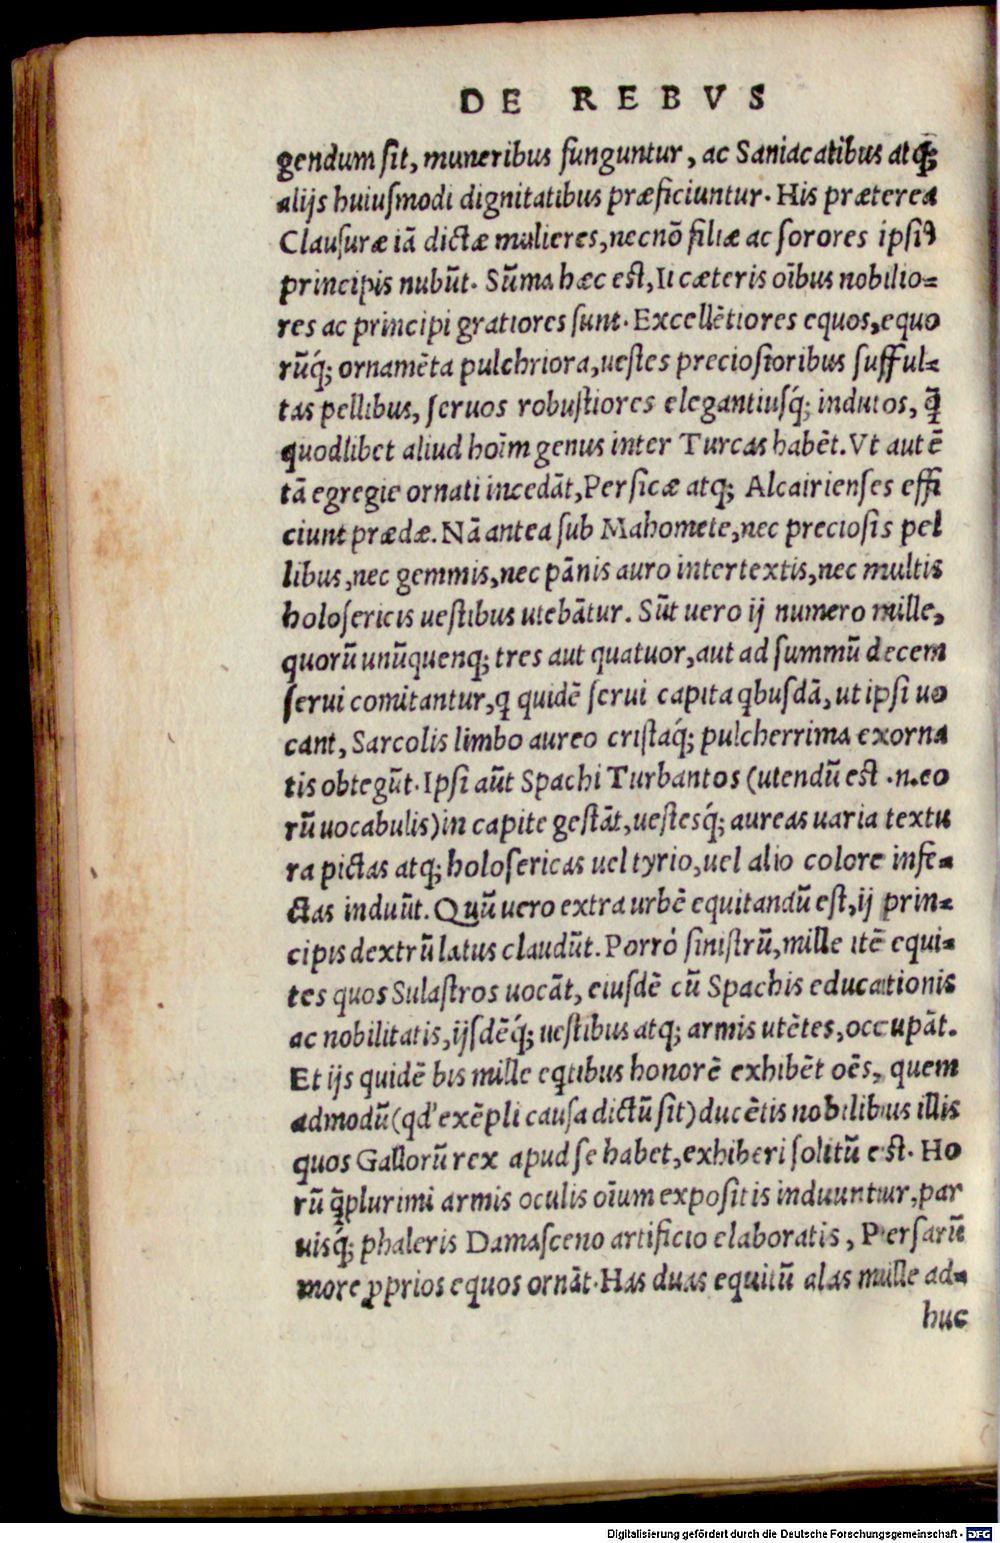 DE REBVS
gendum sit, muneribus funguntur, ac Saniacatibus atq́;
alijs huiusmodi dignitatibus præficiuntur. His præterea
Clausuræ iā dictæ mulieres, necnō filiæ ac sorores ipsiꝰ
principis nubūt. Sūma hæc est, Ii cæteris oībus nobilio=
res ac principi gratiores sunt. Excellētiores equos, equo
rūq́; ornamēta pulchriora, uestes preciosioribusufful=
tas pellibus, seruos robustiores elegantiusq́; indutos, q̄
quodlibet aliud hoīm genus inter Turcas habēt. Vt aut ē
tā egregie ornati incedāt, Persicæ atq; Alcairienses effi
ciunt prædæ. Nā antea sub Mahomete, nec preciosis pel
libus, nec gemmis, nec pānis auro intertextis, nec multis
holosericis uestibus utebātur. Sūt uero ij numero mille,
quorū unūquenq; tres aut quatuor, aut ad summū decem
serui comitantur, q quidē serui capita qbusdā, ut ipsi uo
cant, Sarcolis limbo aureo cristaq́; pulcherrima exorna
tis obtegūt. Ipsi aūt Spachi Turbantos (utendū est .n. eo
rū uocabulis) in capite gestāt, uestesq́; aureas uaria textu
ra pictas atq; holosericas uel tyrio, uel alio colore infe=
ctas induūt. Quū uero extra urbē equitandū est, ij prin=
cipis dextrū latus claudūt. Porró sinistrū, mille itē equi=
tes quos Sulastros uocāt, eiusdē cū Spachis educationis
ac nobilitatis, ijsdēq́; uestibus atq; armis utētes, occupāt.
Et ijs quidē bis mille eqtibus honorē exhibēt oēs, quem
admodū (qd' exēpli causa dictū sit) ducētis nobilibus illis
quos Gallorū rex apud se habet, exhiberi solitū est. Ho
rū q̄plurimi armis oculis oīum expositis induuntur, par
uisq́; phaleris Damasceno artificio elaboratis, Persarū
more ꝓprios equos ornāt. Has duas equitū alas mille ad=
huc
Digitalisierung gefördert durch die Deutsche Forschungsgemeinschaft - DFG